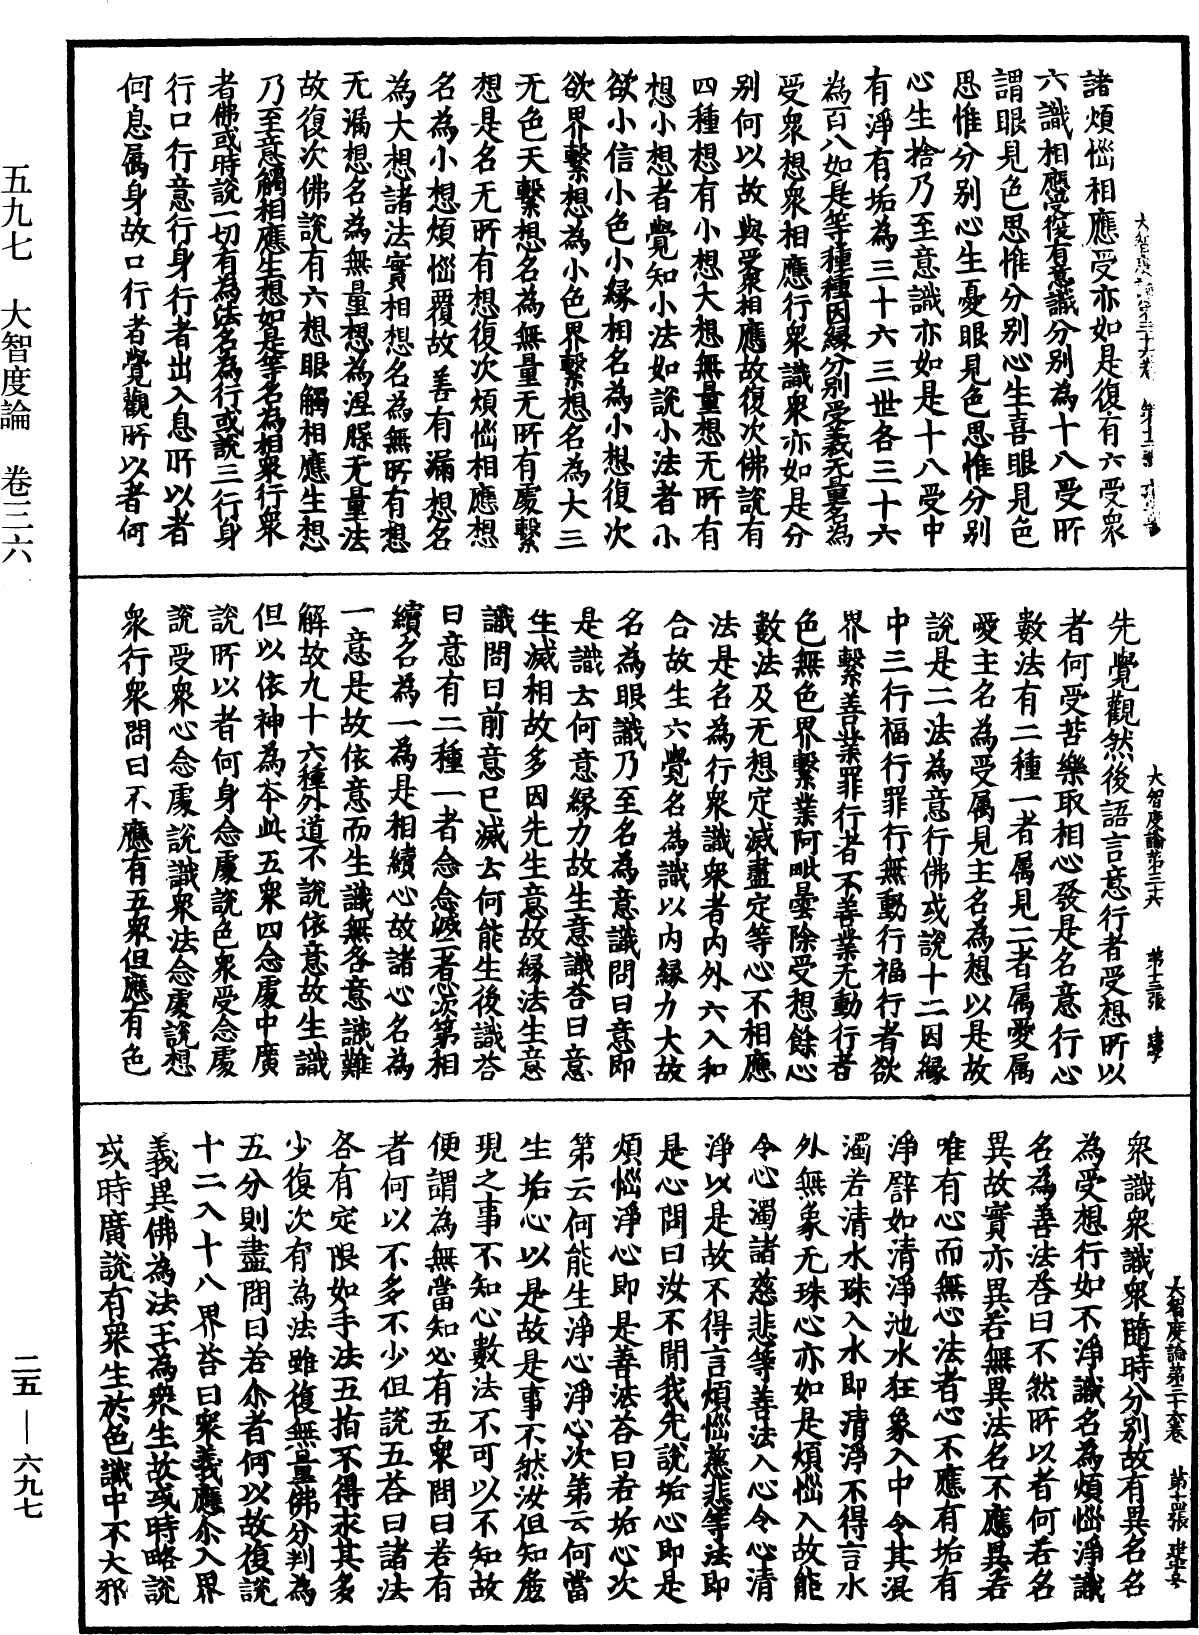 五九七　大智度論　卷三六
諸煩惱相應受亦如是復有六受衆
六識相應受復有意識分别為十八受所
謂眼見色思惟分别心生喜眼見色
思惟分别心生憂眼見色思惟分别
心生捨乃至意識亦如是十八受中
有淨有垢為三十六三世各三十六
為百八如是等種種因緣分别受義无量名為
受衆想衆相應行衆識衆亦如是分
别何以故與受衆相應故復次佛說有
四種想有小想大想無量想无所有
想小想者覺知小法如說小法者小
欲小信小色小緣相名為小想復次
欲界繫想為小色界繫想名為大三
无色天繫想名為無量无所有處繫
想是名无所有想復次煩惱相應想
名為小想煩惱覆故善有漏想名
為大想諸法實相想名為無所有想
无漏想名為無量想為涅槃无量法
故復次佛說有六想眼觸相應生想
乃至意觸相應生想如是等名為相衆行衆
者佛或時說一切有為法名為行或說三行身
行口行意行身行者出入息所以者
何息属身故口行者覺觀所以者何
大智度論第三十六　第十三張　建号
先覺觀然後語言意行者受想所以
者何受苦樂取相心發是名意行心
數法有二種一者属見二者属愛属
愛主名為受属見主名為想以是故
說是二法為意行佛或說十二因緣
中三行福行罪行無動行福行者欲
界繫善業罪行者不善業无動行者
色無色界繫業阿毗曇除受想餘心
數法及无想定滅盡定等心不相應
法是名為行衆識衆者内外六入和
合故生六覺名為識以内緣力大故
名為眼識乃至名為意識問曰意即
是識云何意緣力故生意識荅曰意
生滅相故多因先生意故緣法生意
識問曰前意已滅云何能生後識荅
曰意有二種一者念念滅二者心次第相
續名為一為是相續心故諸心名為
一意是故依意而生識無咎意識難
解故九十六種外道不說依意故生識
但以依神為夲此五衆四念處中廣
說所以者何身念處說色衆受念處
說受衆心念處說識衆法念處說想
衆行衆問曰不應有五衆但應有色
大智度論第三十六卷　第十四張　建号
衆識衆識衆隨時分别故有異名名
為受想行如不淨識名為煩惱淨識
名為善法荅曰不然所以者何若名
異故實亦異若無異法名不應異若
唯有心而無心法者心不應有垢有
淨譬如清淨池水狂象入中令其混
濁若清水珠入水即清淨不得言水
外無象无珠心亦如是煩惱入故能
令心濁諸慈悲等善法入心令心清
淨以是故不得言煩惱慈悲等法即
是心問曰汝不聞我先說垢心即是
煩惱淨心即是善法荅曰若垢心次
第云何能生淨心淨心次第云何當
生垢心以是故是事不然汝但知麁
現之事不知心數法不可以不知故
便謂為無當知必有五衆問曰若有
者何以不多不少但說五荅曰諸法
各有定限如手法五指不得求其多
少復次有為法雖復無量佛分判為
五分則盡問曰若尒者何以故復說
十二入十八界荅曰衆義應尒入界
義異佛為法王為衆生故或時略說
或時廣說有衆生於色識中不大邪
二五—六九七